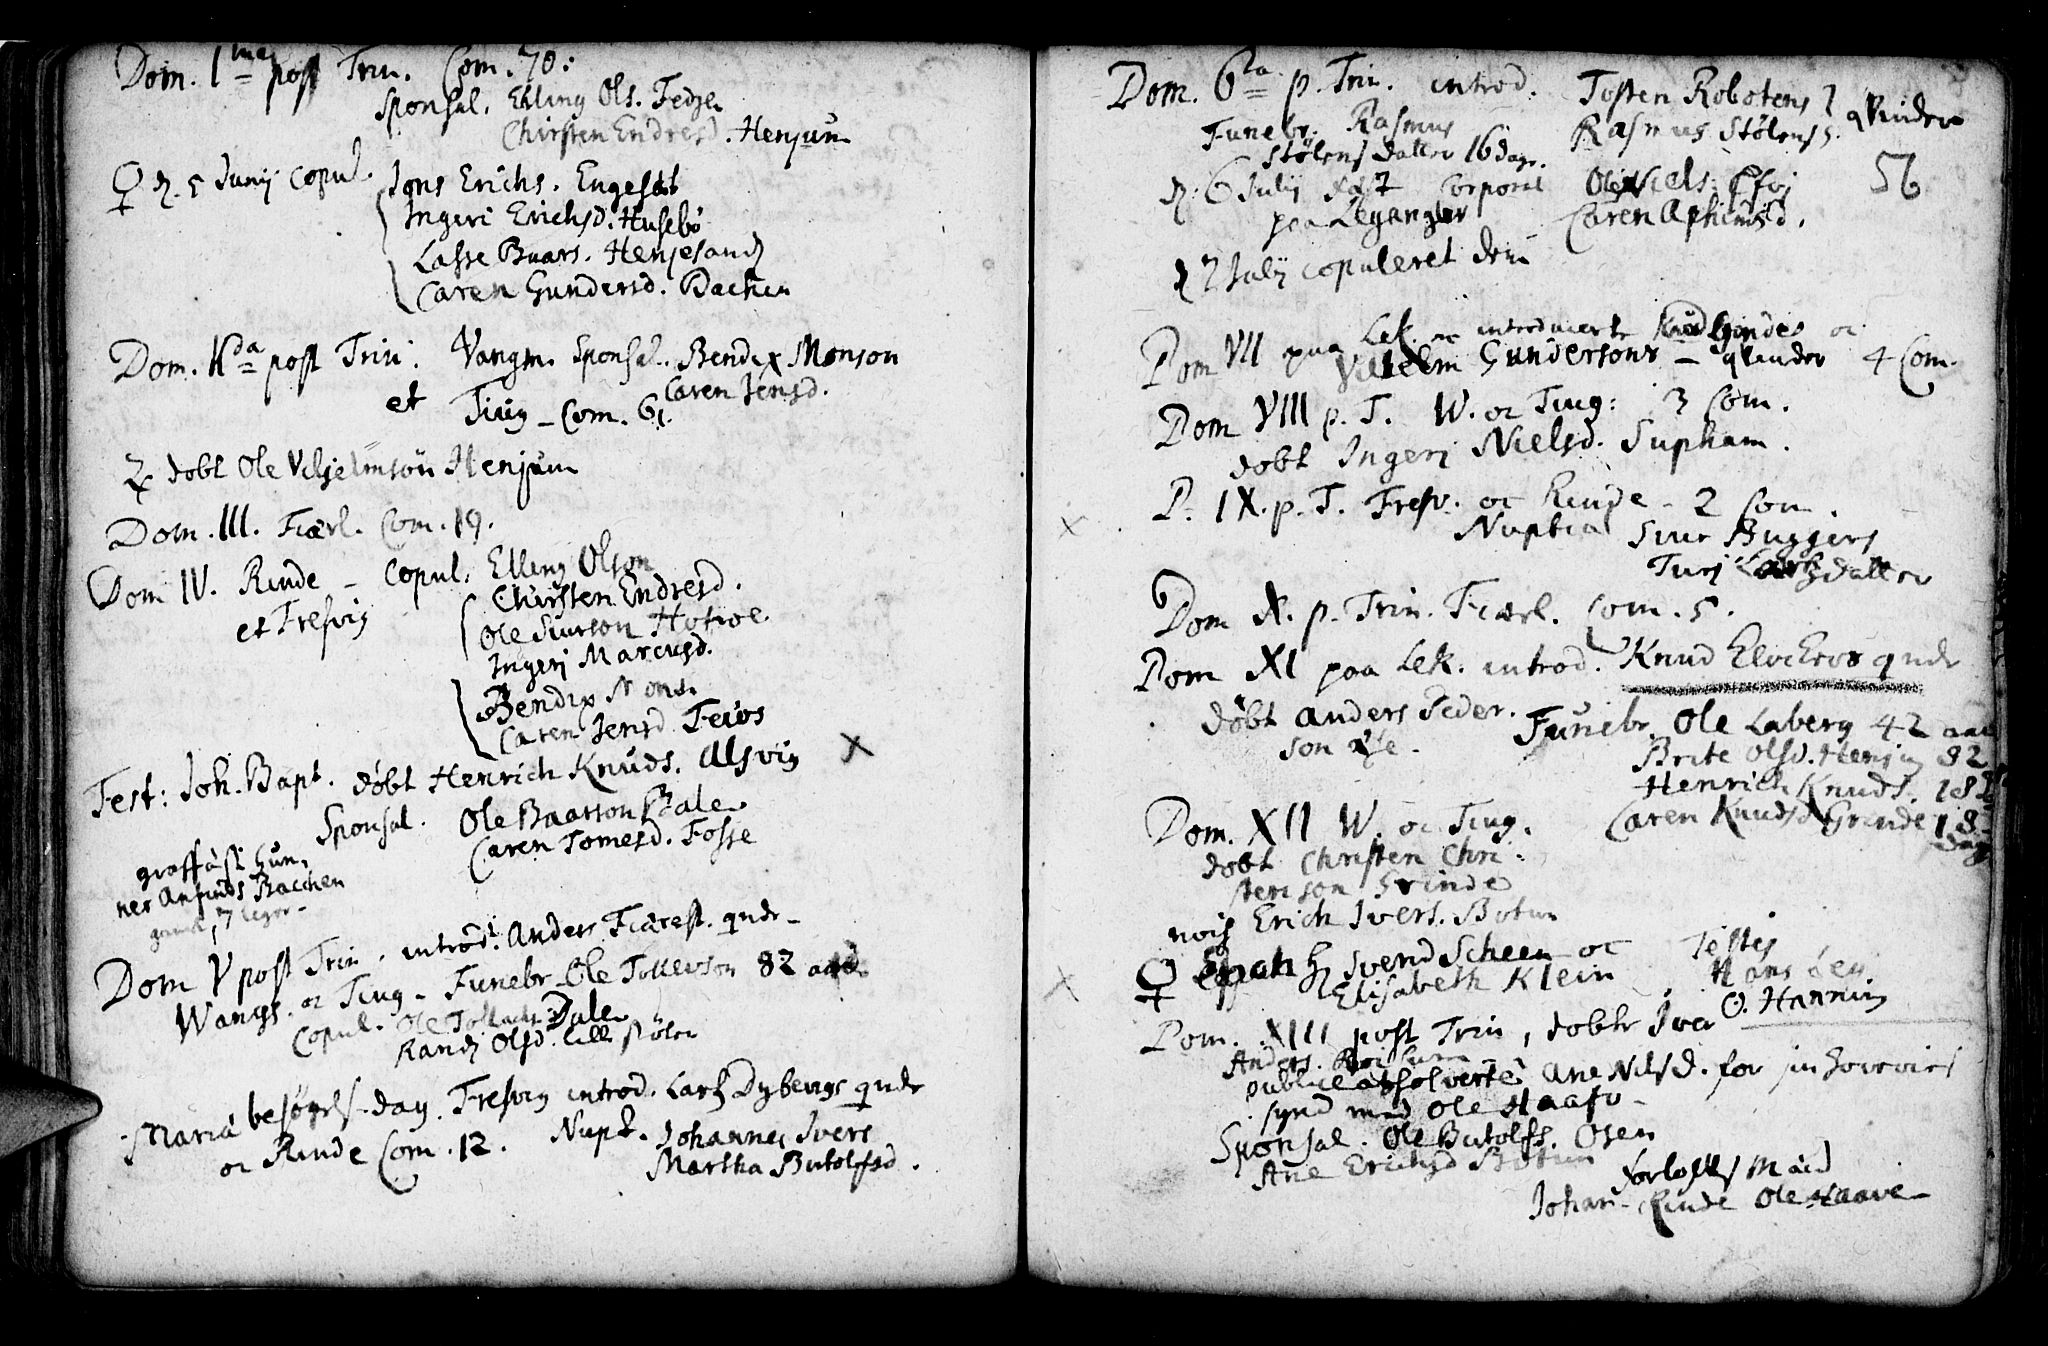 Dom. 1ma post Trin. Com. 70:
Sponsal. Elling Ols. Fedze
Chirsten Endresd. Henjum
♀ d. 5 Junij copul. Jons Erichs. Engesæt
Ingeri Erichsd. Husebö
Lasse Buars. Henjesand
Caren Gundersd. Bachen
Dom. IIda post Trin. Vangm. Sponsal. Bendix Monson
Caren Jensd.
et Tiug – Com. 61.
♃ döbt Ole Viljelmsön Henjum
Dom. III. Fiærl. Com. 19.
Dom IV. Rinde – Copul. Elling Olson
Chirsten Endresd.
et Fresvig
Ole Siurson
Ingeri Marcusd.
Bendix Mons.
Caren Jensd. Feios
Fest: Joh. Bapt. döbt Henrich Knuds. Alsvig X
Sponsal. Ole Baarson Dale
Caren Tomesd. Fosse
graffæst Gun-
ner Anfinds Bacchen
Dom V post Trin. introd. Anders Fiærest. qvde-
Wangs. oc Tiug – Funebr. Ole Tollevson 82 aad.
Copul. Ole Dale
Randj Olsd. lille Stölen
Mariæ besögels-dag. Fresvig introd. Lars Dybevigs qvde
oc Rinde Com. 12. Nupt. Johannes Ivers
Martha Butolfsd.
Dom. 6ta p. Trin. introd. Tosten Robotens
Rasmus Stölens qvinder
Funebr. Rasmus
Stölens datter 16 dage.
56
d. 6 Julij Corporal Ole Niels.
paa Leganger Caren
d 7 Julij copuleret dem
Dom VII paa Lek. oc introducerte Knud Grindes oc
Vilhelm Gundersons – qvinder 4 Com.
Dom VIII p. T. W. oc Tiug: 3 Com.
döbt Ingeri Nielsd. Supham.
D. IX. p. T. Fresv. oc Rinde – 2 Com.
Nuptia Siur Buggers
Turj Larsdatter
Dom X. p. Trin. Fiærl. Com. 5.
Dom XI paa Lek. introd. Knud Elvekros qvde
döbt Anders Peder-
son
Funebr. Ole Laberg 42 aar
Brite Olsd. Henjum 82
Henrich Knuds.
Caren Knudsd Grinde 18
dag
Dom. XII W. oc Tiug.
döbt Christen Chri-
stenson Grinde
noch Erich Ivers. Botun
♀ Svend Scheen oc
Elisabeth Klein
Testes
Hans
O. Hanning
Dom. XIII post Trin, döbte Iver
Anders.
publice absolverte Ane Nilsd. for sin
synd med Ole Haave –
Sponsal. Ole Butolfs. Osen
Ane Erichsd Botun
forlofwes Mænd
Johan Rinde Ole Haave